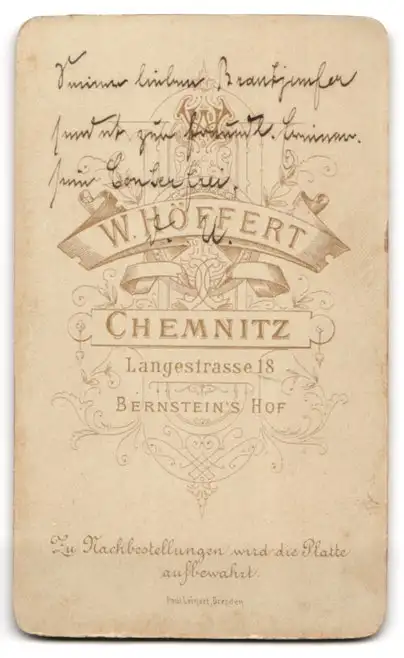 Seiner lieben Brautjungfer
sendet zur freundl. Erinner.
sein Conterfei.
W. HÖFFERT
U.
CHEMNITZ
Langestrasse 18
BERNSTEIN'S HOF
Zu Nachbestellungen wird die Platte
aufbewahrt.